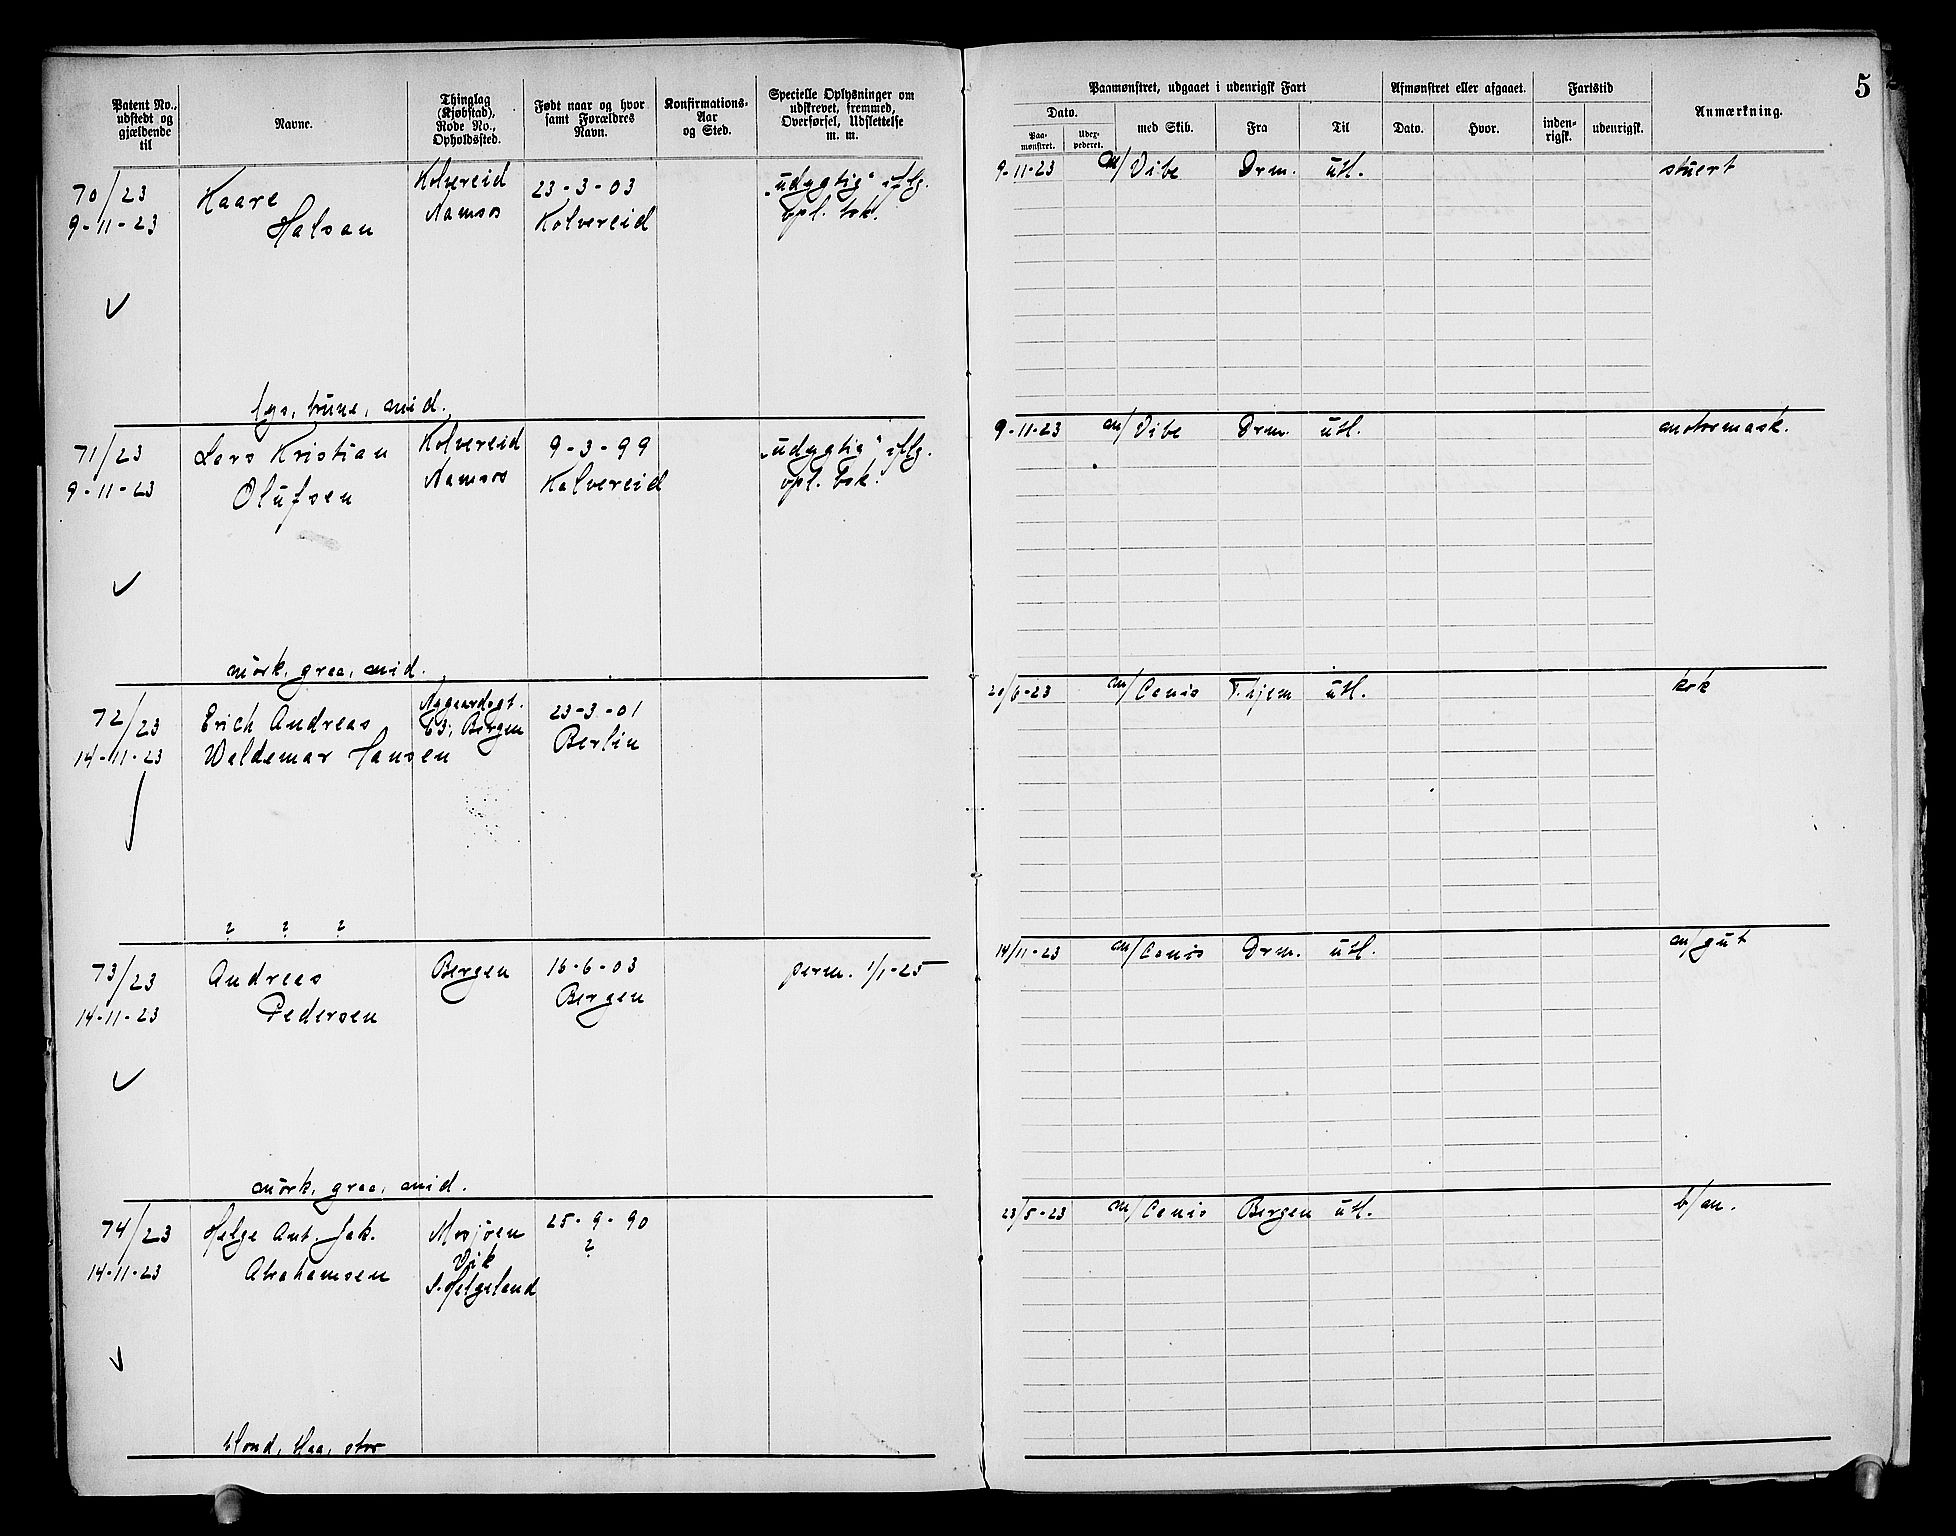 5
Patent No., udstedt og gjældende til
Navne.
Thinglag (Kjøbstad), Rode No., Opholdssted.
Født naar og hvor samt Forældres Navn.
Konfirmations-Aar og Sted.
Specielle Oplysninger om udskrevet, fremmed, Overførsel, Udslettelse m. m.
Paamønstret, udgaaet i udenrigsk Fart
Afmønstret eller afgaaet.
Fartstid
Anmærkning.
Dato.
med Skib.
Fra
Til
Dato.
Hvor.
inden-rigsk.
udenrigsk.
Paa-mønstret.
Udex-pederet.
70/23
9-11-23
Kaare
Halsan
Kolvereid
Namsos
23-3-03
Kolvereid
"udygtig" iflg.
opl. bok.
9-11-23 m/Vibe Drm. utl. stuert
lys, brune, mid.
71/23
9-11-23
Lars Kristian
Olufsen
Kolvereid
Namsos
9-3-99
Kolvereid
"udygtig" iflg.
opl. bok.
9-11-23 m/Vibe Drm. utl. motormask.
mörk, graa, mid.
72/23
14-11-23
Erich Andreas
Waldemar Hansen
Nygaardsgt.
63, Bergen
23-3-01
Berlin
20/6-23 m/Canis T.hjem utl. kok
? ? ?
73/23
14-11-23
Andreas
Pedersen
Bergen
16-6-03
Bergen
perm. 1/1-25
14/11-23 m/Canis Drm. utl. m/gut
mörk, graa, mid.
74/23
14-11-23
Helge Ant. Jak.
Abrahamsen
Mosjöen
Vik
S. Helgeland
25-9-90
?
23/5-23 m/Canis Bergen utl. b/m.
blond, blaa, stor